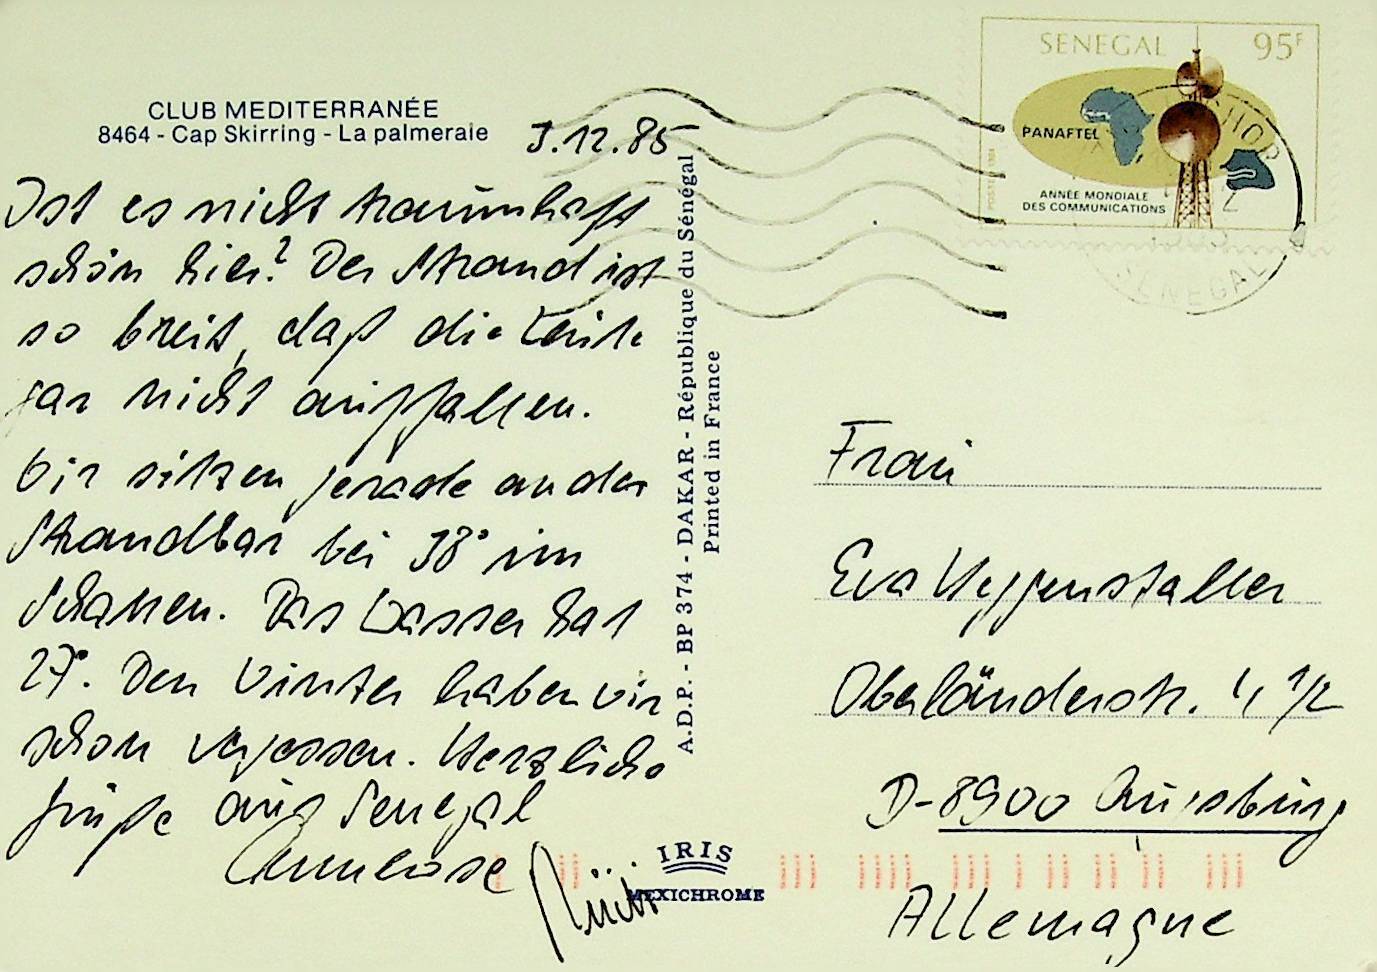 CLUB MEDITERRANÉE
8464 - Cap Skirring - La palmeraie
3.12.85
Ist es nicht traumhaft
schön hier? Der Strand ist
so breit, daß die Leute
gar nicht auffallen.
Wir sitzen gerade an der
Strandbar bei 38° im
Schatten. Das Wasser hat
27°. Den Winter haben wir
schon vergessen. Herzliche
Grüße aus Senegal
Annerose
A.D.P. - BP 374 - DAKAR - République du Sénégal
Printed in France
IRIS
MEXICHROME
SENEGAL 95F
PANAFTEL
ANNÉE MONDIALE
DES COMMUNICATIONS
SENEGAL
Frau
Eva Heggenstaller
Oberländerstr. 4 1/2
D-8900 Augsburg
Allemagne